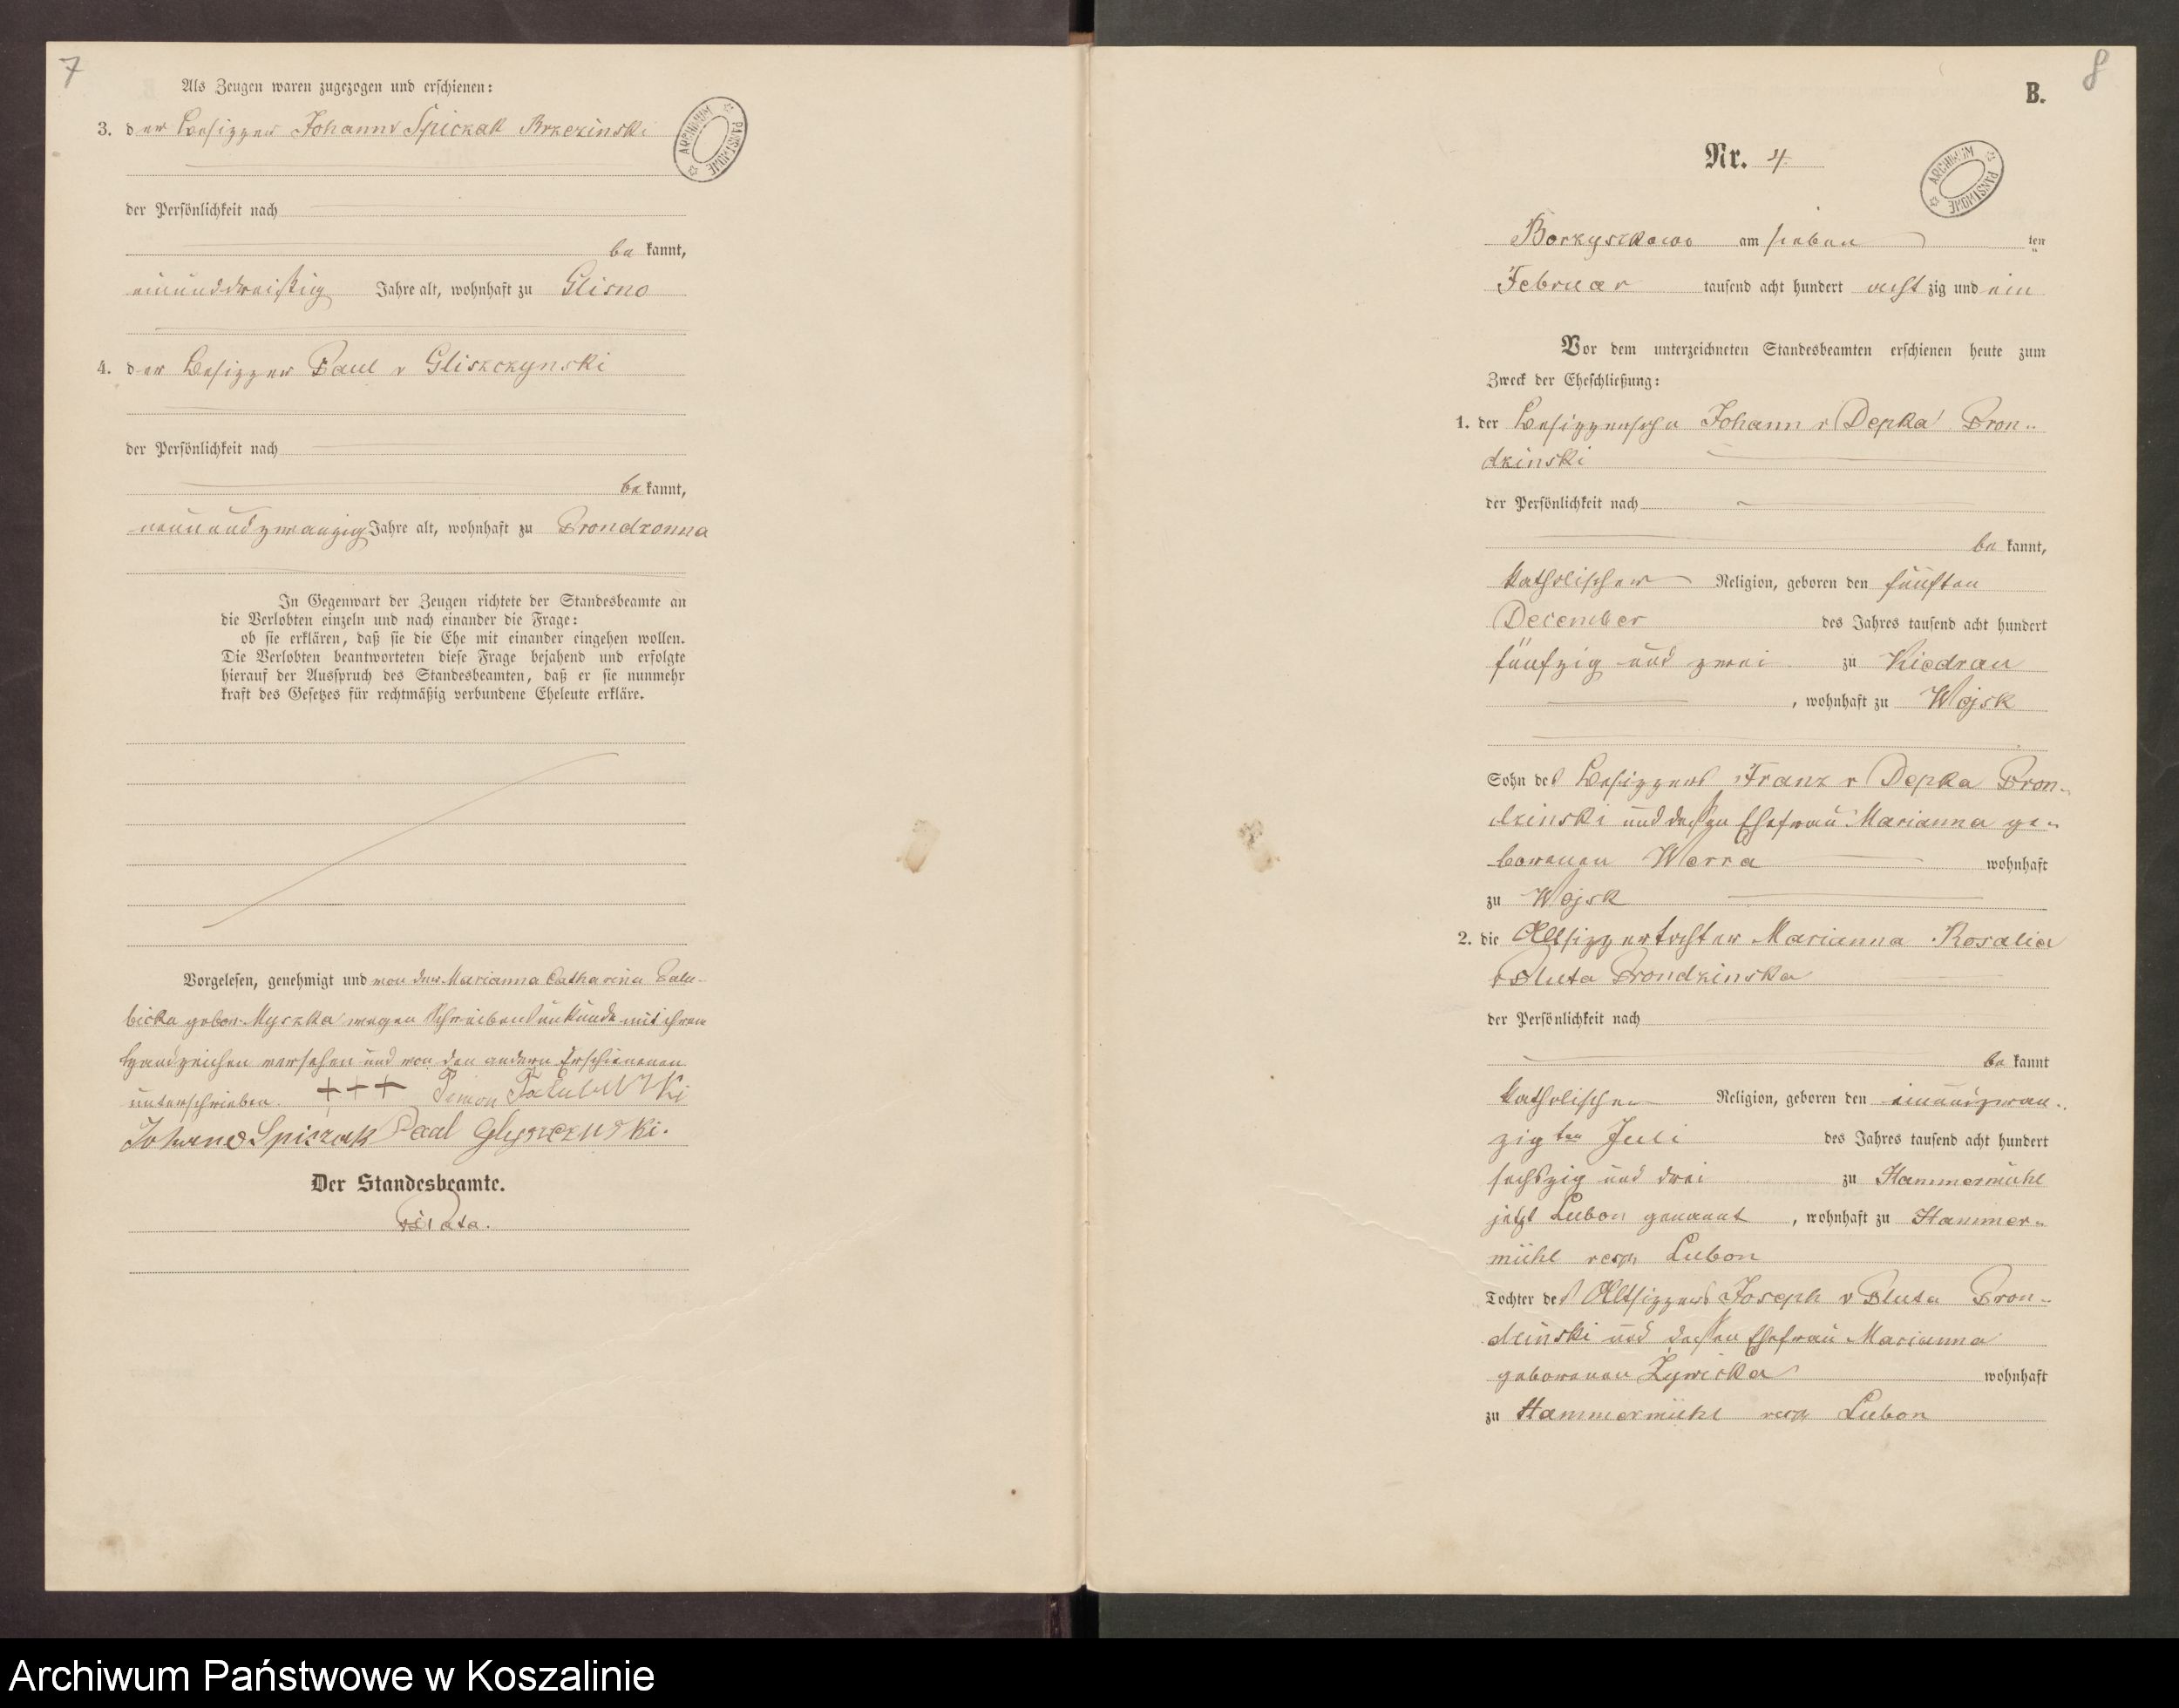 7
Als Zeugen waren zugezogen und erschienen:
3. der Besitzer Johann v Spiczak Brzezinski
ARCHIWUM PAŃSTWOWE
der Persönlichkeit nach
be kannt,
einunddreißig Jahre alt, wohnhaft zu Glisno
4. der Besitzer Paul v Gliszczynski
der Persönlichkeit nach
be kannt,
neunundzwanzig Jahre alt, wohnhaft zu Prondzonna
In Gegenwart der Zeugen richtete der Standesbeamte an
die Verlobten einzeln und nach einander die Frage:
ob sie erklären, daß sie die Ehe mit einander eingehen wollen.
Die Verlobten beantworteten diese Frage bejahend und erfolgte
hierauf der Ausspruch des Standesbeamten, daß er sie nunmehr
kraft des Gesetzes für rechtmäßig verbundene Eheleute erkläre.
Vorgelesen, genehmigt und von der Marianna Catharina Palu-
bicka gebor. Myszka wegen Schreibensunkunde mit ihrem
Handzeichen versehen und von den andern Erschienenen
unterschrieben. +++
Johann Spiczak Paul
Der Standesbeamte.
8
B.
Nr. 4
ARCHIWUM PAŃSTWOWE
Borzyszkowo am sieben ten
Februar tausend acht hundert acht zig und ein
Vor dem unterzeichneten Standesbeamten erschienen heute zum
Zweck der Eheschließung:
1. der Besitzersohn Johann v Depka Pron-
dzinski
der Persönlichkeit nach
be kannt,
katholischer Religion, geboren den fünften
December des Jahres tausend acht hundert
fünfzig und zwei zu Kiedrau
, wohnhaft zu Wojsk
Sohn des Besitzers Franz v Depka Pron-
dzinski und dessen Ehefrau Marianna ge-
borenen Werra wohnhaft
zu Wojsk
2. die Altsitzertochter Marianna Rosalia
v Pluta Prondzinska
der Persönlichkeit nach
be kannt
katholischer Religion, geboren den einundzwan-
zig ten Juli des Jahres tausend acht hundert
sechszig und drei zu Hammermühl
jetzt Lubon genannt , wohnhaft zu Hammer-
mühl resp. Lubon
Tochter des Altsitzers Joseph v Pluta Pron-
dzinski und dessen Ehefrau Marianna
geborenen Żywicka wohnhaft
zu Hammermühl resp. Lubon
Archiwum Państwowe w Koszalinie